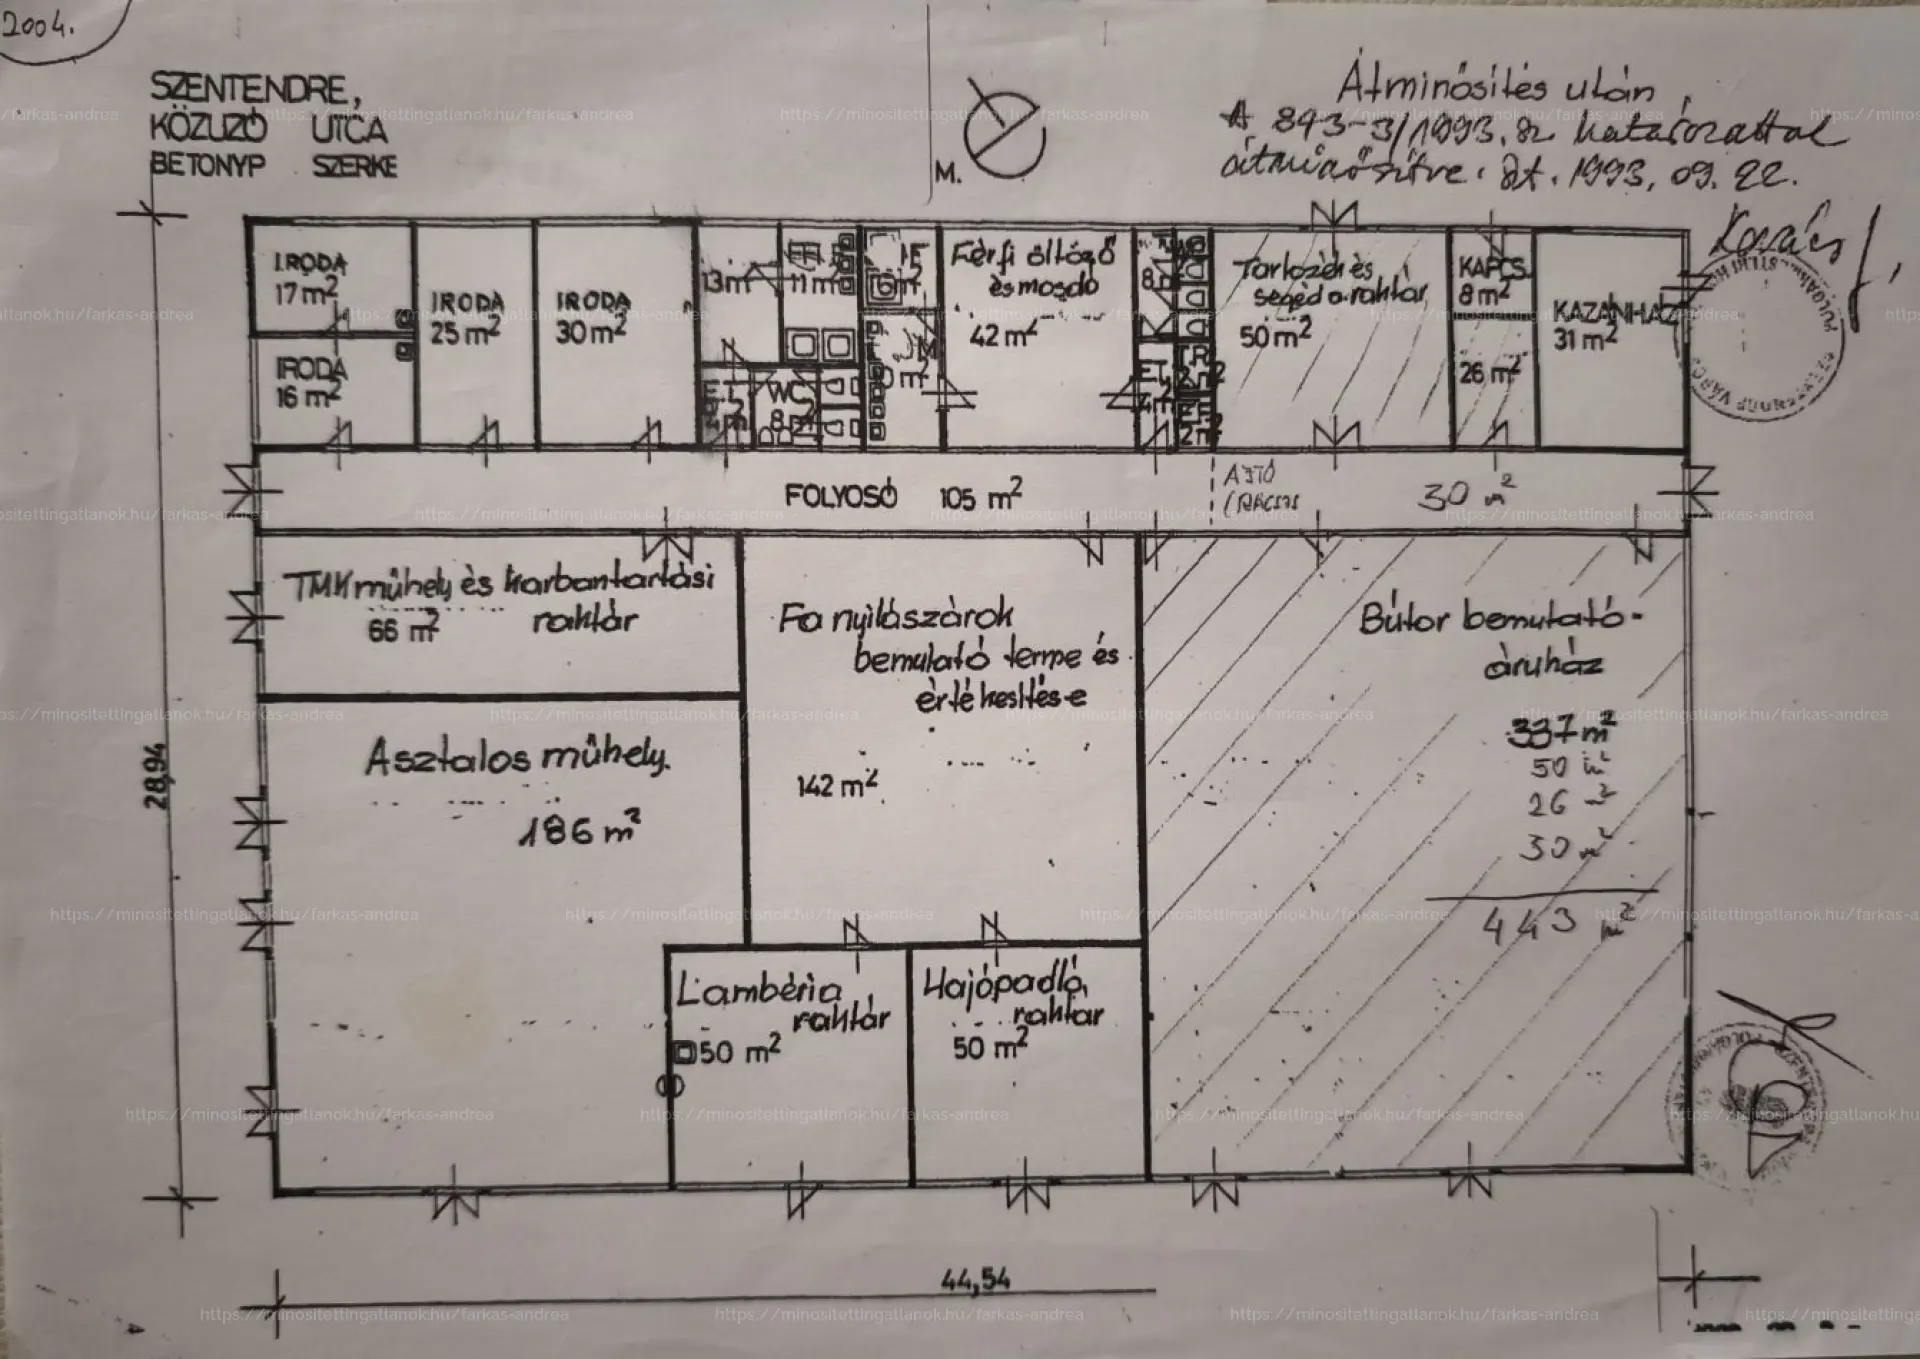 2004.
SZENTENDRE,
KÖZUZÓ UTCA
BETONYP SZERKE
M.
Átminősítés után
A 893-3/1993. sz. határozattal
átminősítve. Szt. 1993. 09. 22.
Kovács
IRODA
17 m²
IRODA
16 m²
IRODA
25 m²
IRODA
30 m²
13 m²
11 m²
ET.
4 m²
WC
8 m²
Férfi öltöző
és mosdó
42 m²
ET.
4 m²
2 m²
2 m²
Tartozék és
segéda.raktár
50 m²
KAPCS.
8 m²
26 m²
KAZÁNHÁZ
31 m²
FOLYOSÓ 105 m²
AJTÓ
(RÁCSOS
30 m²
TMK műhely és karbantartási
raktár
66 m²
Fa nyílászárok
bemutató terme és
értékesítés-e
142 m²
Bútor bemutató-
áruház
337 m²
50 m²
26 m²
30 m²
443 m²
Asztalos műhely.
186 m²
Lambéria
raktár
50 m²
Hajópadló,
raktar
50 m²
28,94
44,54
https://minositettingatlanok.hu/farkas-andrea